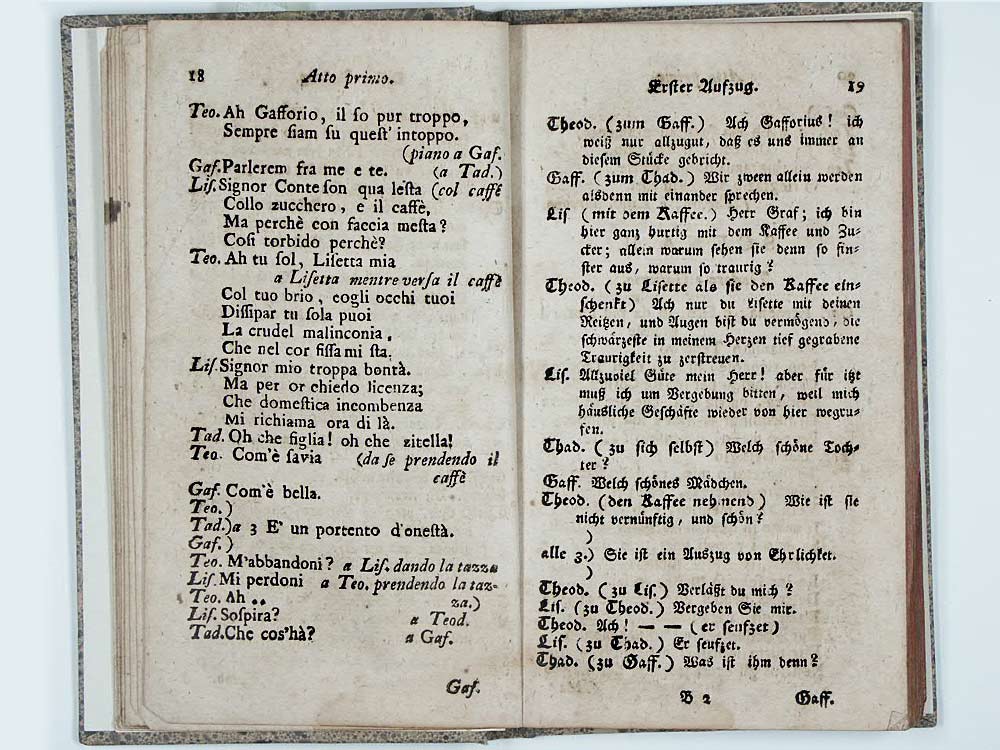 18 Atto primo.
Teo. Ah Gafforio, il ſo pur troppo,
Sempre ſiam ſu queſt' intoppo.
(piano a Gaf.
Gaf. Parlerem fra me e te. (a Tad.)
Liſ. Signor Conte ſon qua leſta (col caffè
Collo zucchero, e il caffè,
Ma perchè con faccia meſta?
Coſi torbido perchè?
Teo. Ah tu ſol, Liſetta mia
a Liſetta mentre verſa il caffè
Col tuo brio, cogli occhi tuoi
Diſſipar tu ſola puoi
La crudel malinconia,
Che nel cor fiſſa mi ſta.
Liſ. Signor mio troppa bontà.
Ma per or chiedo licenza;
Che domeſtica incombenza
Mi richiama ora di là.
Tad. Oh che figlia! oh che zitella!
Teo. Com'è ſavia (da ſe prendendo il
caffè
Gaf. Com'è bella.
Teo. )
Tad. )a 3 E' un portento d'oneſtà.
Gaf. )
Teo. M'abbandoni? a Liſ. dando la tazza
Liſ. Mi perdoni a Teo. prendendo la taz-
Teo. Ah .. za.)
Liſ. Soſpira? a Teod.
Tad. Che cos'hà? a Gaf.
Gaf.
Erſter Aufzug. 19
Theod. (zum Gaff.) Ach Gafforius! ich
weiß nur allzugut, daß es uns immer an
dieſem Stücke gebricht.
Gaff. (zum Thad.) Wir zween allein werden
alsdenn mit einander ſprechen.
Liſ (mit dem Kaffee.) Herr Graf; ich bin
hier ganz hurtig mit dem Kaffee und Zu-
cker; allein warum ſehen ſie denn ſo fin-
ſter aus, warum ſo traurig?
Theod. (zu Liſette als ſie den Kaffee ein-
ſchenkt) Ach nur du Liſette mit deinen
Reitzen, und Augen biſt du vermögend, die
ſchwärzeſte in meinem Herzen tief gegrabene
Traurigkeit zu zerſtreuen.
Liſ. Allzuviel Güte mein Herr! aber für itzt
muß ich um Vergebung bitten, weil mich
häusliche Geſchäfte wieder von hier wegru-
fen.
Thad. (zu ſich ſelbſt) Welch ſchöne Toch-
ter?
Gaff. Welch ſchönes Mädchen.
Theod. (den Kaffee nehmend) Wie iſt ſie
nicht vernünftig, und ſchön?
)
alle 3.) Sie iſt ein Auszug von Ehrlichket.
)
Theod. (zu Liſ.) Verläßt du mich?
Liſ. (zu Theod.) Vergeben Sie mir.
Theod. Ach! — — (er ſeufzet)
Liſ. (zu Thad.) Er ſeufzet.
Thad. (zu Gaff.) Was iſt ihm denn?
B 2 Gaff.